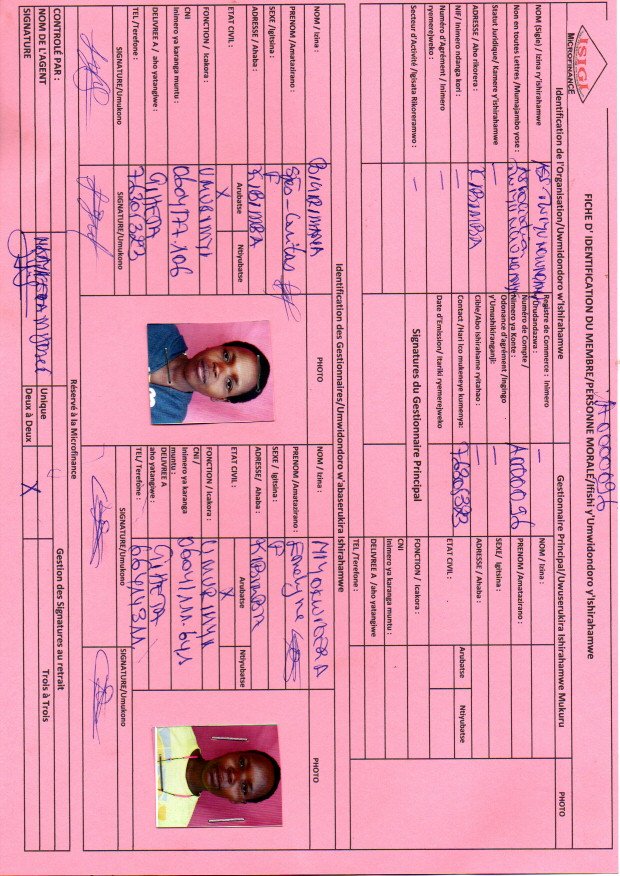 ISIGI
MICROFINANCE
FICHE D' IDENTIFICATION DU MEMBRE/PERSONNE MORALE/Ifishi y'Umwidondoro y'Ishirahamwe
A0000096
Identification de l'Organisation/Uwmidondoro w'Ishirahamwe
Gestionnaire Principal/Uwuserukira Ishirahamwe Mukuru
PHOTO
NOM (Sigle) / Izina ry'ishirahamwe
Non en toutes Lettres /Mumajambo yose :
Statut Juridique/ Kamere y'ishirahamwe
ADRESSE / Aho rikorera : KIBIMBA
NIF/ Inimero ndanga kori : —
Numéro d'Agrément / Inimero
ryemerejweko : —
Secteur d'Activité /Igisata Rikoreramwo : —
Registre de Commerce : Inimero
y'Urudandazwa : —
Numéro de Compte /
Nimero ya Konte : A0000096
Odonance d'agrément /Ingingo
y'Umushikiranganji: —
Cible/Abo ishirahame ryitaho : —
Contact /Hari ico mukeneye kumenya: 76801383
Date d'Emission/ Itariki ryemerejweko
Signatures du Gestionnaire Principal
NOM / Izina :
PRENOM /Amatazirano :
SEXE/ Igitsina :
ADRESSE / Ahaba :
ETAT CIVIL :
Arubatse
Ntiyubatse
FONCTION / Icakora :
CNI
Inimero ya karanga muntu :
DELIVREE A /aho yatangiwe
TEL /Terefone :
Identification des Gestionnaires/Umwidondoro w'abaserukira Ishirahamwe
NOM / Izina : BIGIRIMANA
PHOTO
PRENOM /Amatazirano : Spès Caritas
SEXE /Igitsina : F
ADRESSE / Ahaba : KIBIMBA
ETAT CIVIL :
Arubatse X
Ntiyubatse
FONCTION / Icakora : UMURIMYI
CNI
Inimero ya karanga muntu :
DELIVREE A / aho yatangiwe : GIHETA
TEL /Terefone : 76801383
SIGNATURE/Umukono
SIGNATURE/Umukono
NOM / Izina :
PHOTO
PRENOM /Amatazirano : Emelyne
SEXE / Igitsina : F
ADRESSE/ Ahaba : KIBIMBA
ETAT CIVIL :
Arubatse X
Ntiyubatse
FONCTION / Icakora : UMURIMYI
CNI
Inimero ya karanga
muntu :
DELIVREE A
aho yatangiwe : GIHETA
TEL/ Terefone :
SIGNATURE/Umukono
SIGNATURE/Umukono
Réservé à la Microfinance
CONTROLE PAR :
NOM DE L'AGENT
SIGNATURE
Gestion des Signatures au retrait
Unique
Deux à Deux X
Trois à Trois